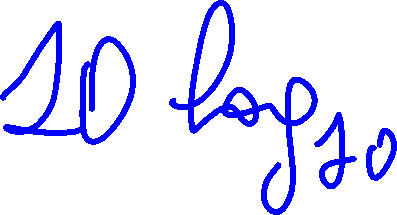 10 log₁₀